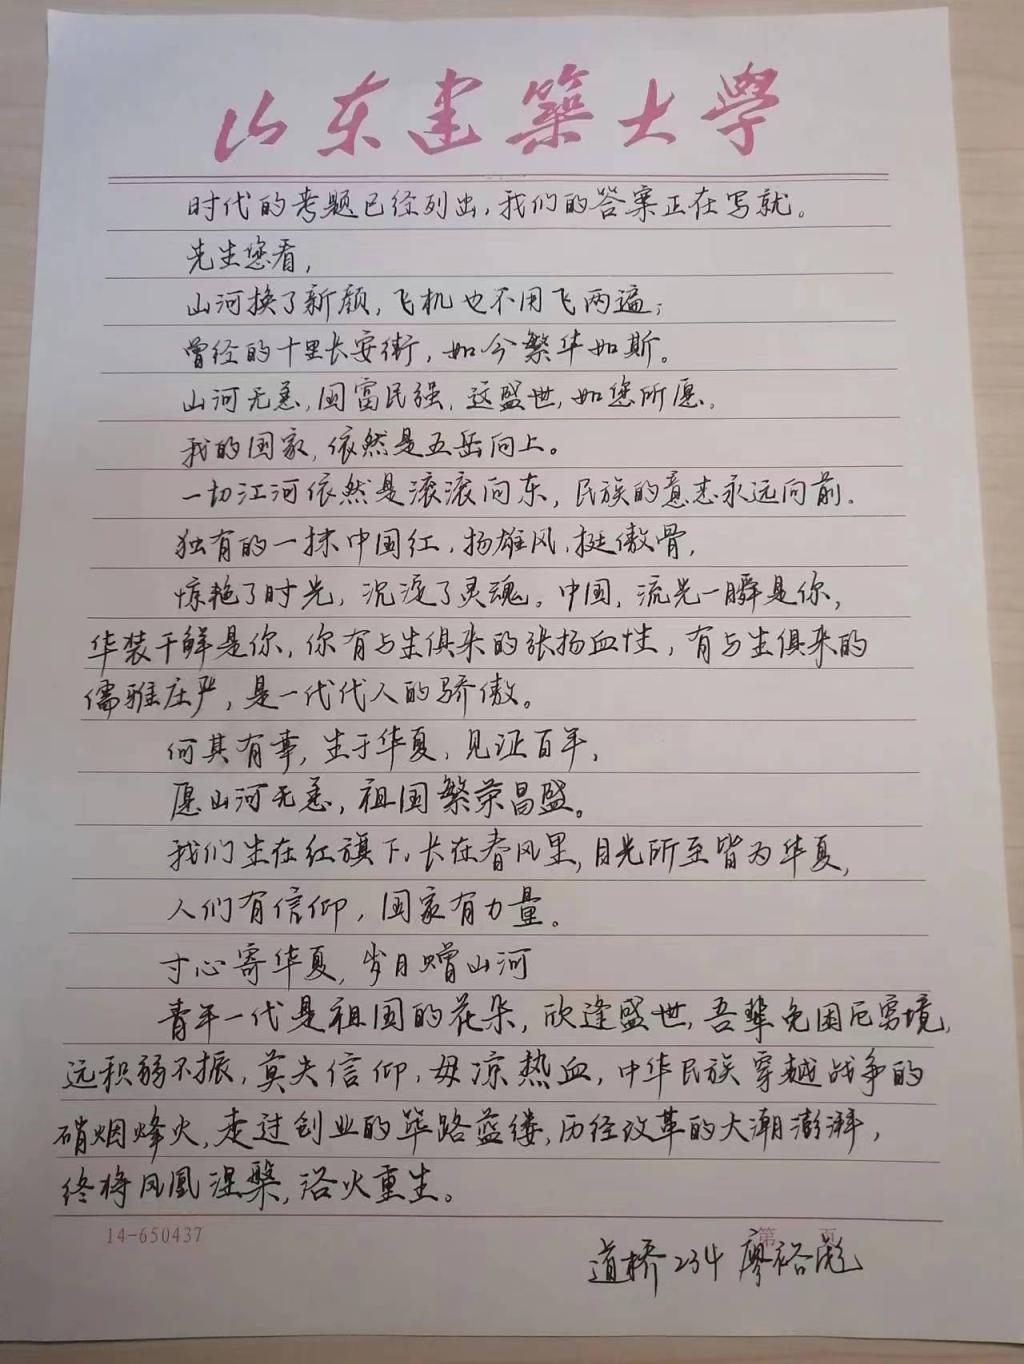 山东建築大學
时代的考题已经列出，我们的答案正在写就。
先生您看，
山河换了新颜，飞机也不用飞两遍；
曾经的十里长安街，如今繁华如斯。
山河无恙，国富民强，这盛世，如您所愿。
我的国家，依然是五岳向上。
一切江河依然是滚滚向东，民族的意志永远向前。
独有的一抹中国红，扬雄风，挺傲骨，
惊艳了时光，沉淀了灵魂。中国，流光一瞬是你，
华装千鲜是你，你有与生俱来的张扬血性，有与生俱来的
儒雅庄严，是一代代人的骄傲。
何其有幸，生于华夏，见证百年，
愿山河无恙，祖国繁荣昌盛。
我们生在红旗下，长在春风里，目光所至皆为华夏，
人们有信仰，国家有力量。
寸心寄华夏，岁月赠山河
青年一代是祖国的花朵，欣逢盛世，吾辈免困厄穷境，
远积弱不振，莫失信仰，毋凉热血，中华民族穿越战争的
硝烟烽火，走过创业的筚路蓝缕，历经改革的大潮澎湃，
终将凤凰涅槃，浴火重生。
14-650437
第 页
道桥234 廖裕彪